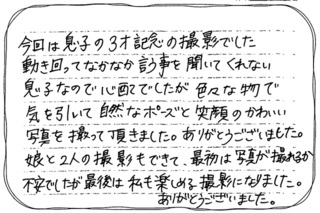 今回は息子の3才記念の撮影でした
動き回ってなかなか言う事を聞いてくれない
息子なので心配でしたが色々な物で
気を引いて自然なポーズと笑顔のかわいい
写真を撮って頂きました。ありがとうございました。
娘と2人の撮影もできて、最初は写真が撮れるか
不安でしたが最後は私も楽しめる撮影になりました。
ありがとうございました。